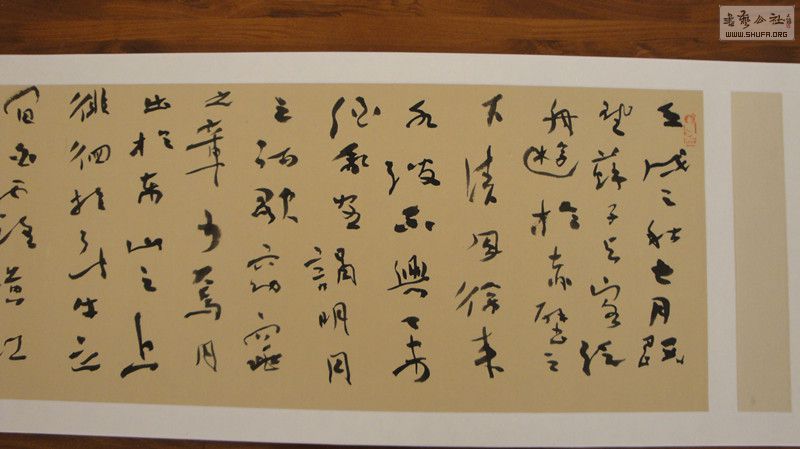 壬戌之秋七月既
望蘇子与客泛
舟遊於赤壁之
下清風徐来
水波不興举
酒属客誦明月
之詩歌窈窕
之章少焉月
出於東山之上
徘徊於斗牛之
間白露横江
書藝公社
WWW.SHUFA.ORG